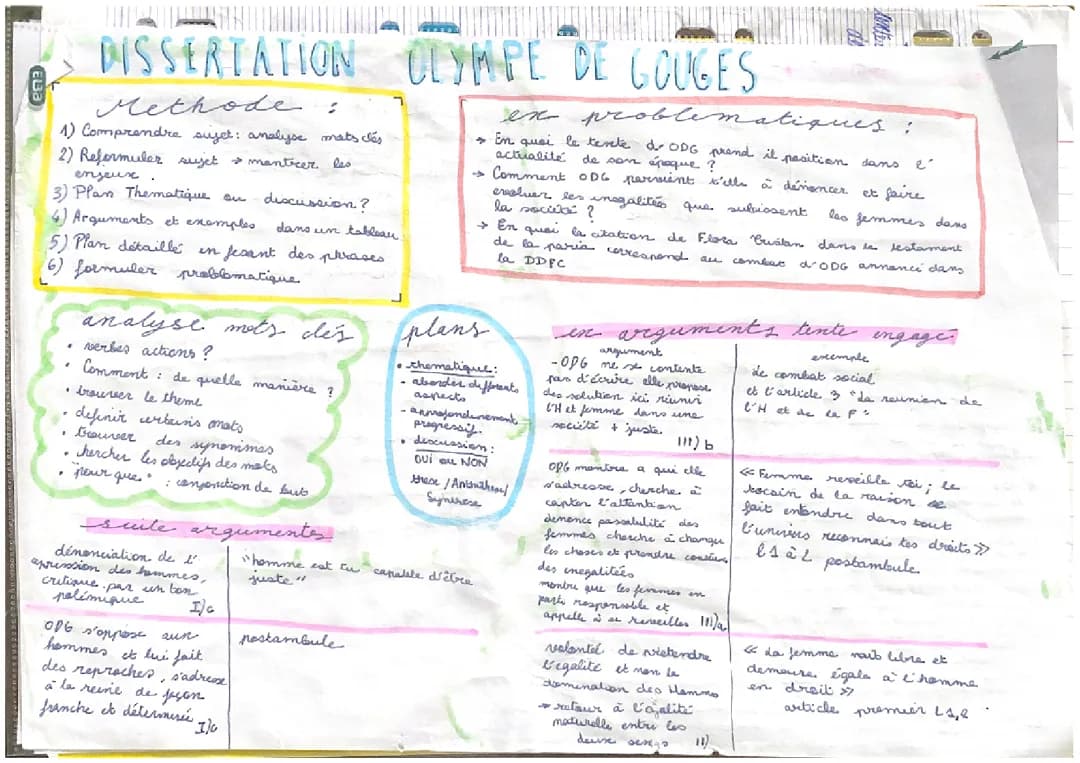 DISSERTATION OLYMPE DE GOUGES
Methode :
1) Comprendre sujet : analyse mots clés
2) Reformuler sujet → montrer les
enjeux.
3) Plan Thematique ou discussion ?
4) Arguments et exemples dans un tableau
5) Plan détaillé en fesant des phrases
6) formuler problématique
ex problematiques :
→ En quoi le texte d'ODG prend il position dans l'
actualité de son époque ?
→ Comment ODG parvient t'elle à dénoncer et faire
evoluer les inegalités que subissent les femmes dans
la société ?
→ En quoi la citation de Flora Tristan dans le testament
de la paria correspond au combat d'ODG annoncé dans
la DDFC
analyse mots clés
• verbes actions ?
• Comment : de quelle manière ?
• trouver le thème
• definir certains mots
• trouver des synonimes
• chercher les objectifs des mots
• "pour que" : conjonction de but
plans
• thematique :
- aborder différents
aspects
- approfondissement
progressif
• discussion :
OUI ou NON
these / Antithèse /
Synthèse
ex arguments texte engagé
argument
- ODG ne se contente
pas d'écrire, elle propose
des solution ici réunir
l'H et femme dans une
société + juste
III) b
exemple
de combat social
et l'article 3 "la reunion de
l'H et de la F"
ODG montre a qui elle
s'adresse, cherche à
capter l'attention
denonce des
femmes cherche à changer
les choses et prendre
des inegalités
montre que les femmes en
parti responsable et
appelle à se reveilles III)a
« Femme reveille toi ; le
tocsin de la raison se
fait entendre dans tout
l'univers reconnais tes droits »
L1 à 2 postambule
volonté de pretendre
l'egalité et non la
domination des Hommes
→ retour à l'égalité
naturelle entre les
deux sexes II)
« La femme nait libre et
demeure égale à l'homme
en droit »
article premier L1,2
suite arguments
dénonciation de l'
opression des hommes,
critique par un ton
polémique
"homme est tu capable d'être
juste"
ODG s'oppose aux
hommes et lui fait
des reproches, s'adresse
à la reine de façon
franche et déterminée
postambule